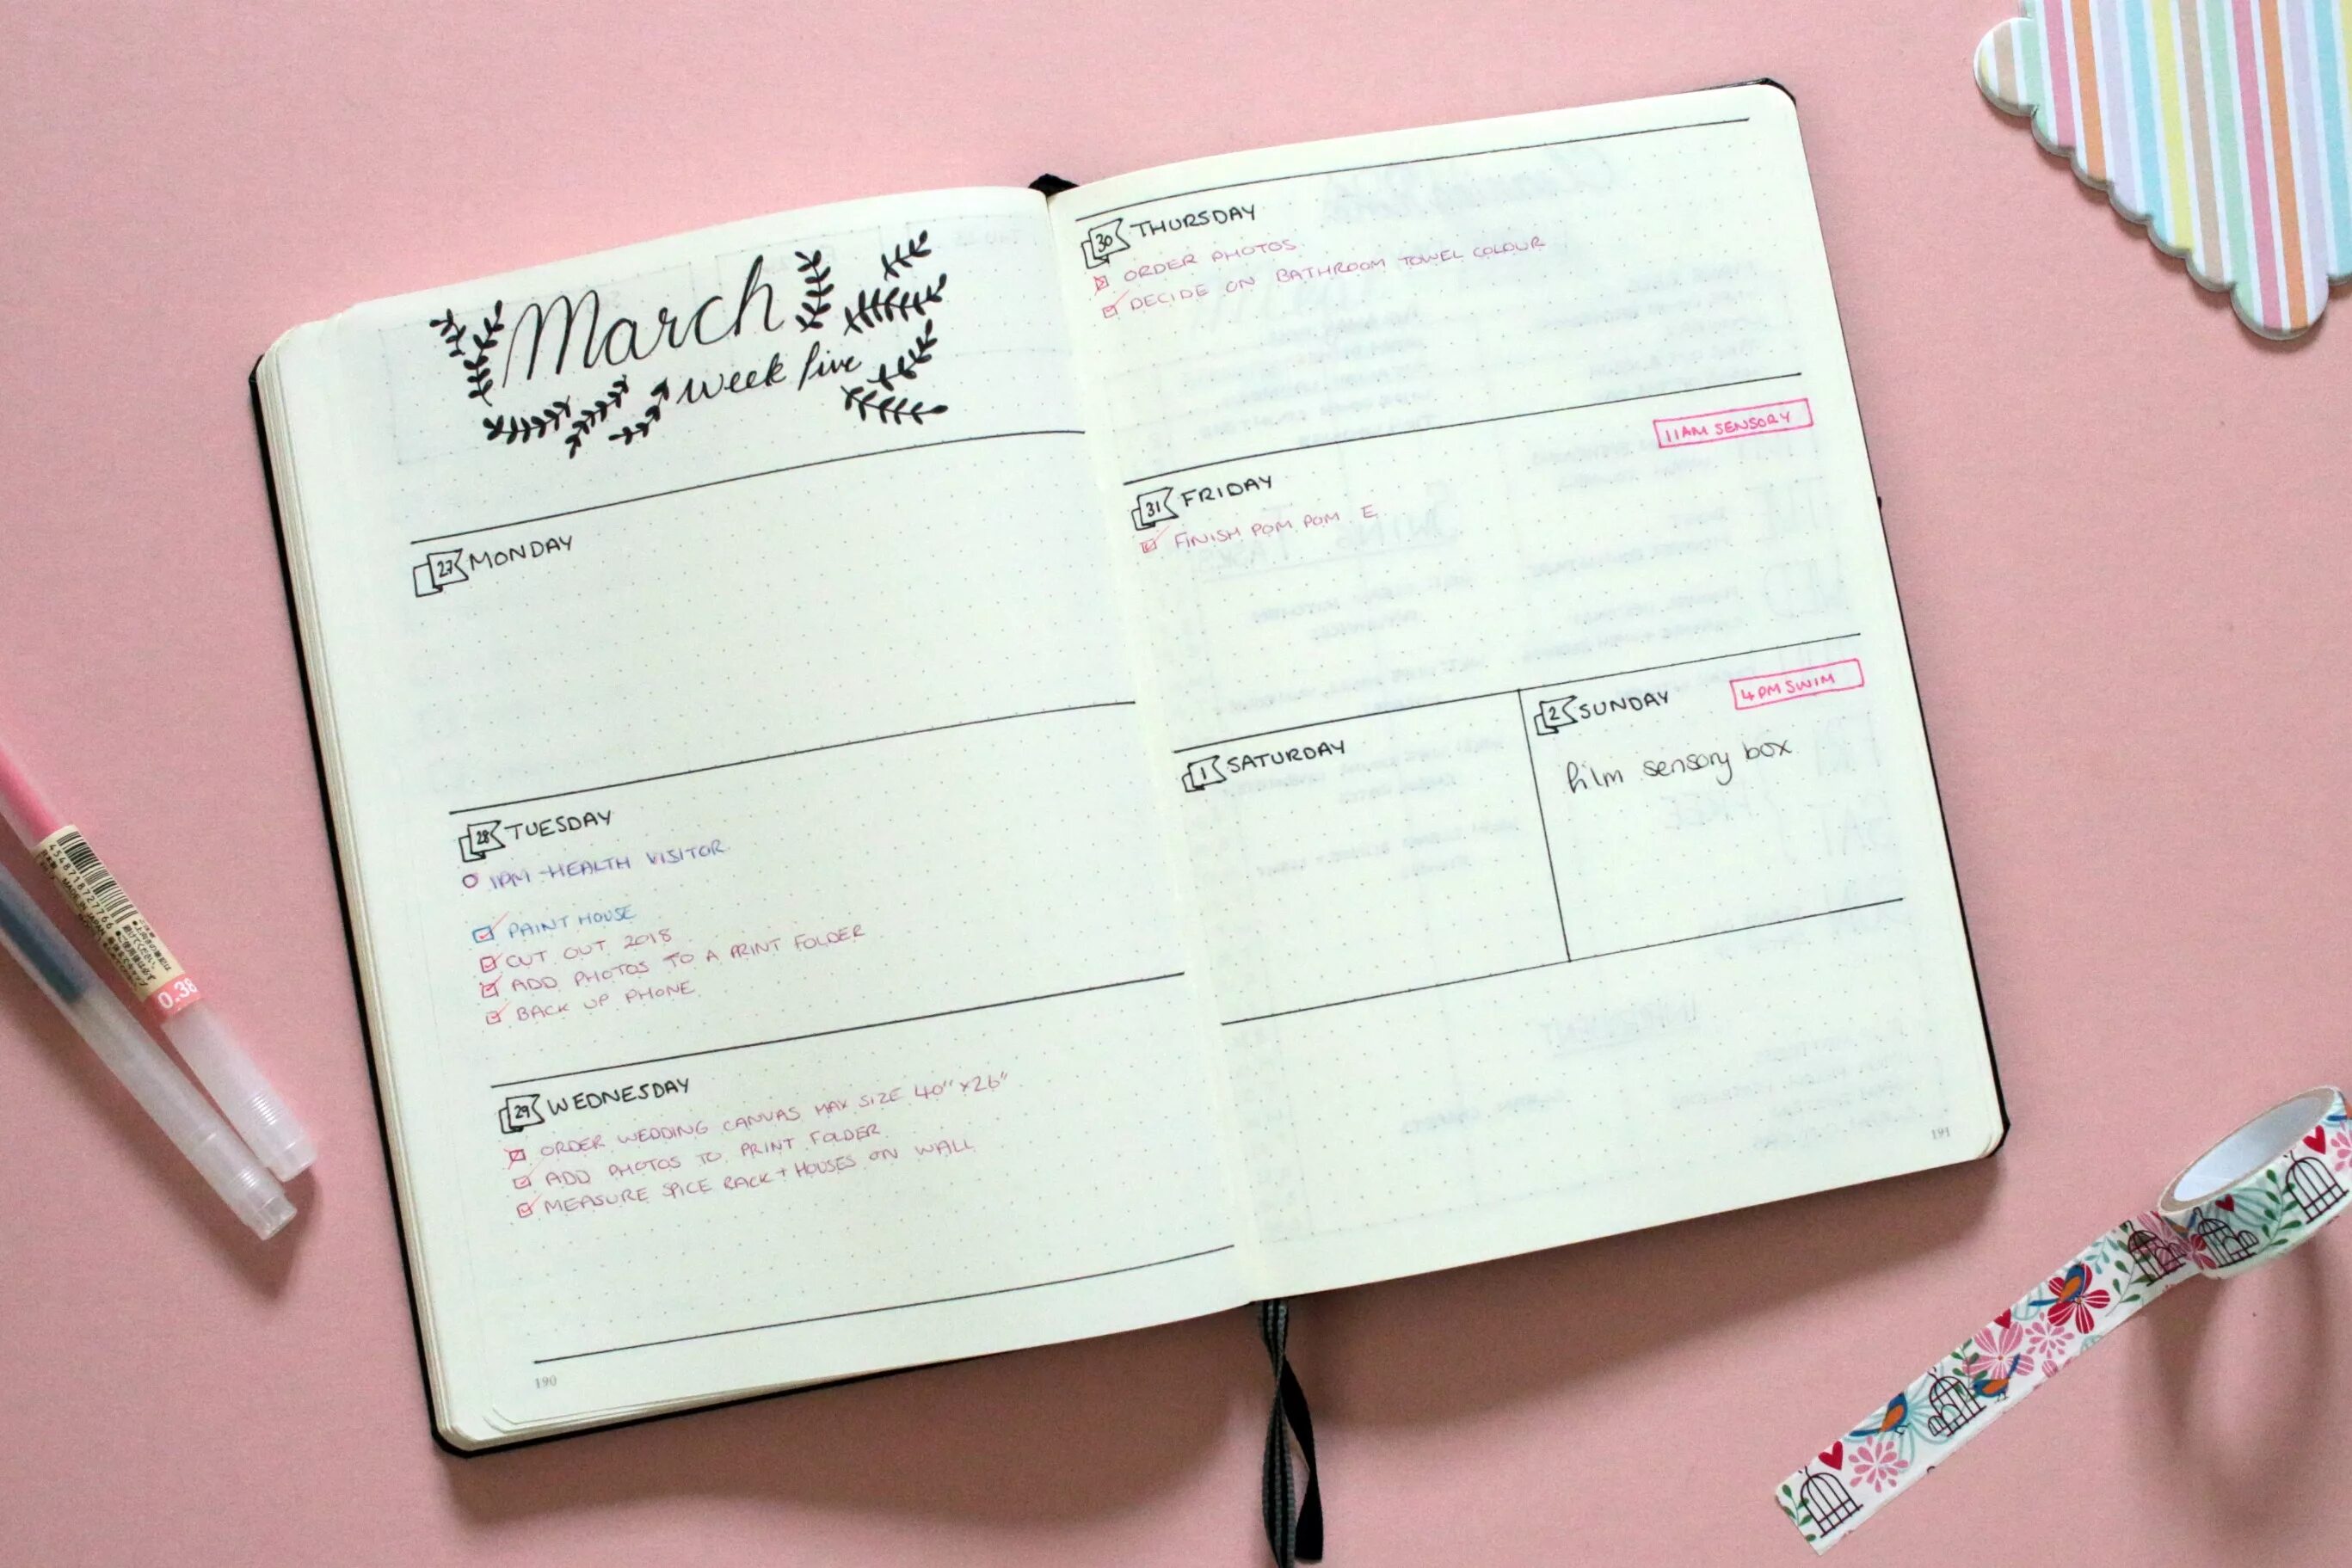 March
week five
27 MONDAY
28 TUESDAY
1PM - HEALTH VISITOR
PAINT HOUSE
CUT OUT 2018
ADD PHOTOS TO A PRINT FOLDER
BACK UP PHONE
29 WEDNESDAY
ORDER WEDDING CANVAS MAX SIZE 40" x 26"
ADD PHOTOS TO PRINT FOLDER
MEASURE SPICE RACK + HOUSES ON WALL
190
30 THURSDAY
ORDER PHOTOS
DECIDE ON BATHROOM TOWEL COLOUR
11AM SENSORY
31 FRIDAY
FINISH POM POM E
1 SATURDAY
2 SUNDAY
4PM SWIM
film sensory box
191
4548718727766
MADE IN JAPAN
0.38